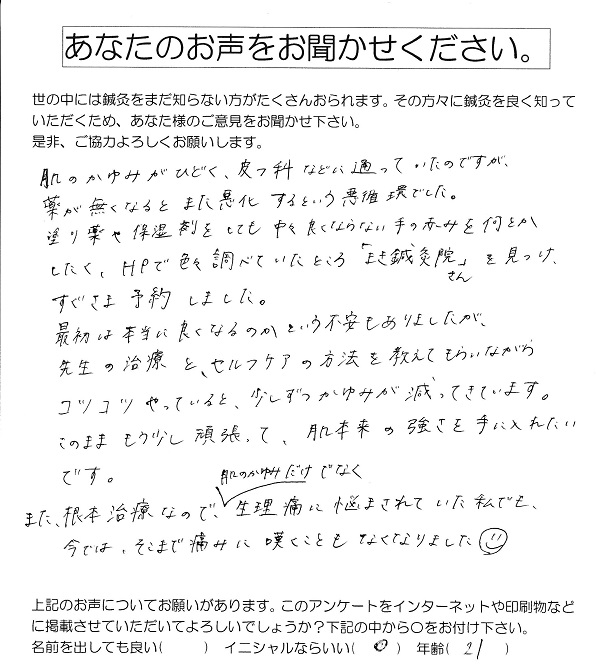 あなたのお声をお聞かせください。
世の中には鍼灸をまだ知らない方がたくさんおられます。その方々に鍼灸を良く知って
いただくため、あなた様のご意見をお聞かせ下さい。
是非、ご協力よろしくお願いします。
肌のかゆみがひどく、皮フ科などに通っていたのですが、
薬が無くなるとまた悪化するという悪循環でした。
塗り薬や保湿剤をしても中々良くならない手の赤みを何とか
したく、HPで色々調べていたところ「まき鍼灸院」を見つけ、
さん
すぐさま予約しました。
最初は本当に良くなるのかという不安もありましたが、
先生の治療と、セルフケアの方法を教えてもらいながら
コツコツやっていると、少しずつかゆみが減ってきています。
このままもう少し頑張って、肌本来の強さを手に入れたい
です。
肌のかゆみだけでなく
また、根本治療なので、生理痛に悩まされていた私でも、
今では、そこまで痛みに嘆くこともなくなりました
上記のお声についてお願いがあります。このアンケートをインターネットや印刷物など
に掲載させていただいてよろしいでしょうか？下記の中から○をお付け下さい。
名前を出しても良い(　　) イニシャルならいい( ○ ) 年齢( 21 )